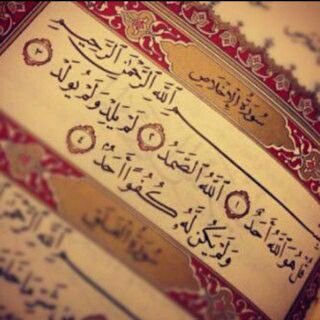 سُورَةُ الإِخْلَاصِ
بِسْمِ اللهِ الرَّحْمٰنِ الرَّحِيمِ
قُلْ هُوَ اللهُ أَحَدٌ ١ اللهُ الصَّمَدُ ٢ لَمْ يَلِدْ وَلَمْ يُولَدْ ٣
وَلَمْ يَكُنْ لَهُ كُفُوًا أَحَدٌ ٤
سُورَةُ الفَلَقِ
اللهِ الرَّحْمٰنِ
شَرِّ مَا خَلَقَ